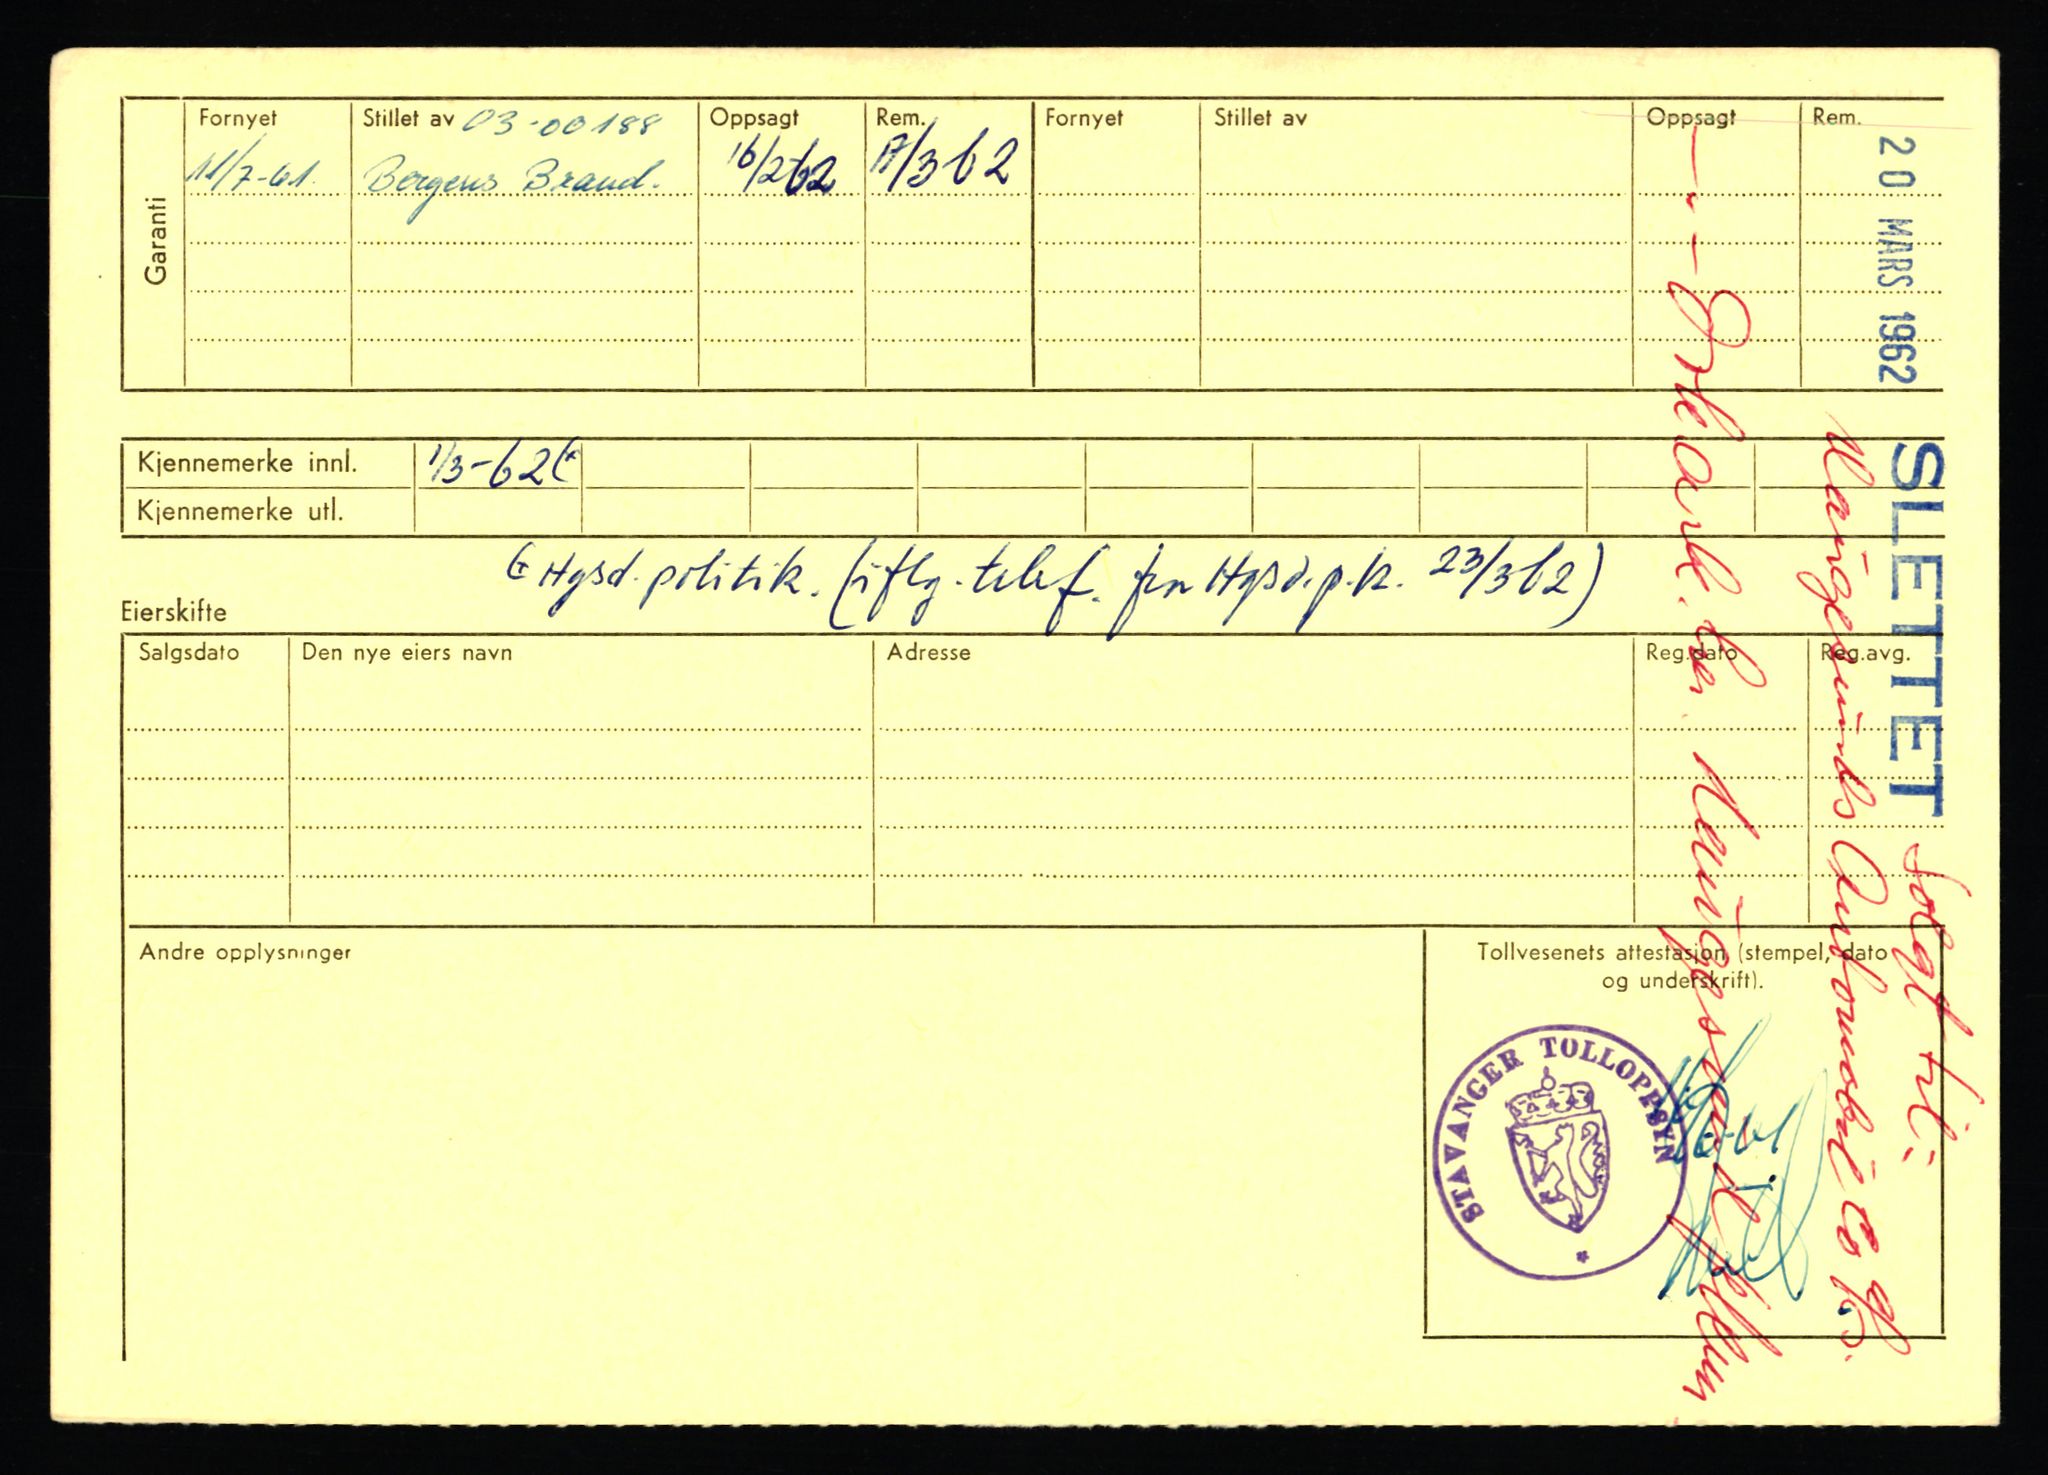 Garanti
Fornyet Stillet av 03-00188 Oppsagt Rem. Fornyet Stillet av Oppsagt Rem.
11/7-61. Bergens Brand. 16/2 62 17/3 62
Kjennemerke innl. 1/3-62
Kjennemerke utl.
Hgsd. politik. (iflg. telef. fra Hgsd. p.k. 23/3 62)
Eierskifte
Salgsdato Den nye eiers navn Adresse Reg.dato Reg.avg.
Andre opplysninger
Tollvesenets attestasjon (stempel, dato
og underskrift).
STAVANGER TOLLOPPSYN
20 MARS 1962
SLETTET
Solgt til:
Haugesunds Automobil Co
Haugesund